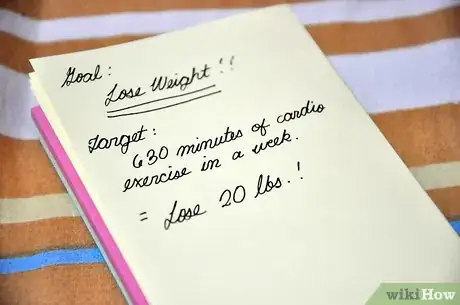 Goal:
Lose Weight!!
Target:
630 minutes of cardio
exercise in a week.
= Lose 20 lbs.!
wikiHow